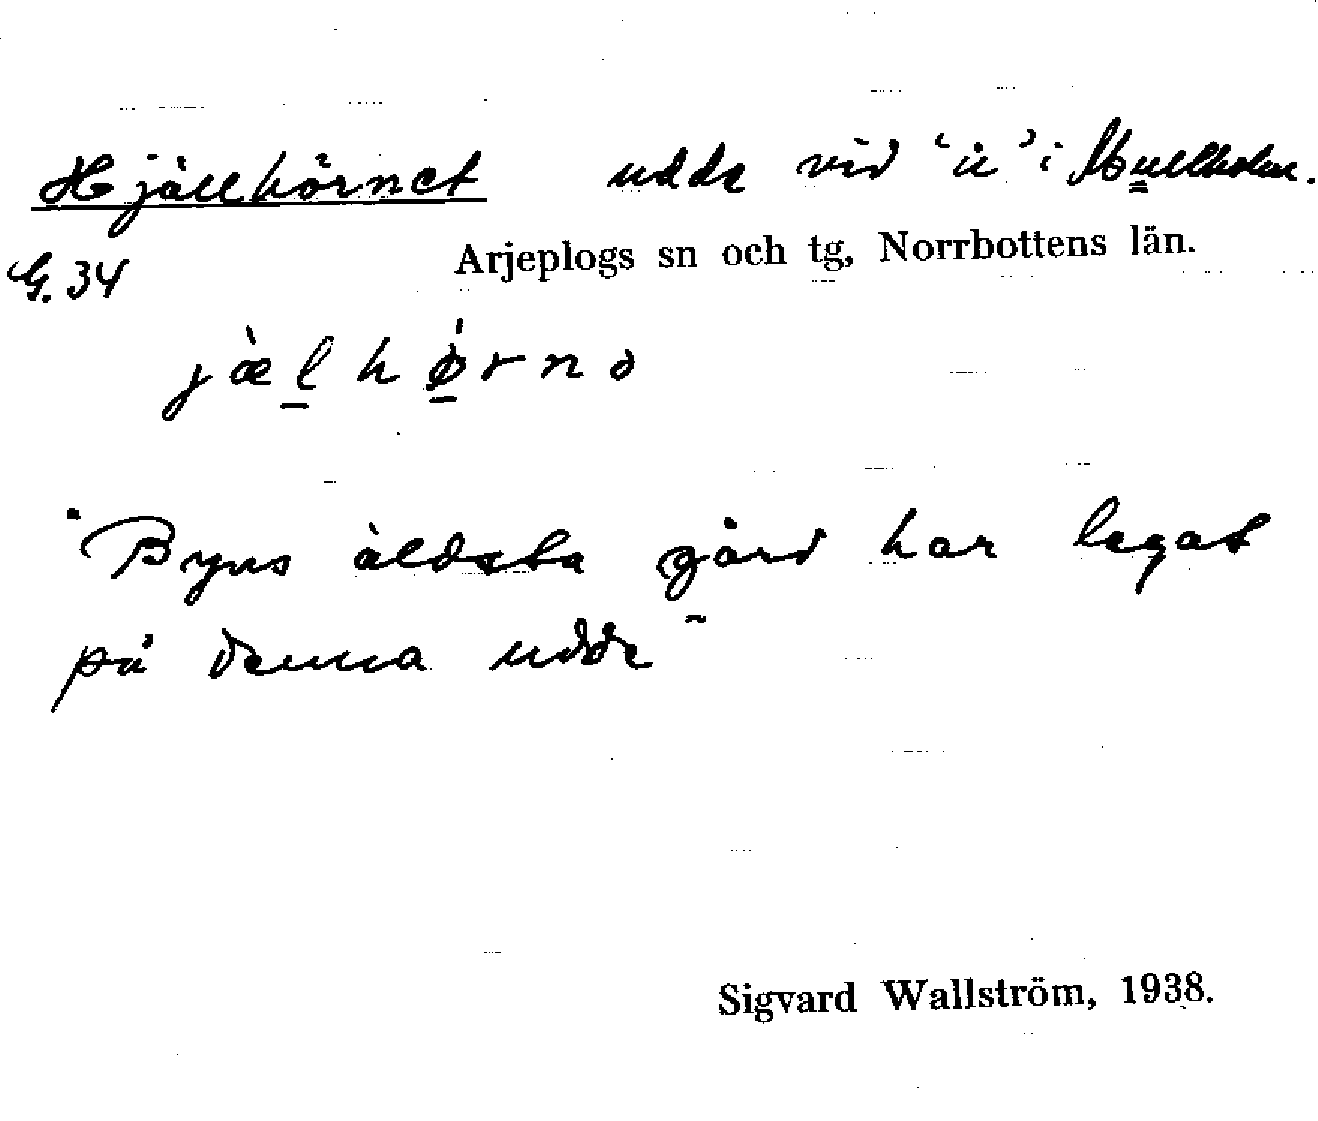 Hjällhörnet udde vid 'å' i Mullholm.
Arjeplogs sn och tg, Norrbottens län.
G. 34
jæ̀l hǿrnə
"Byns äldsta gård har legat
på denna udde"
Sigvard Wallström, 1938.